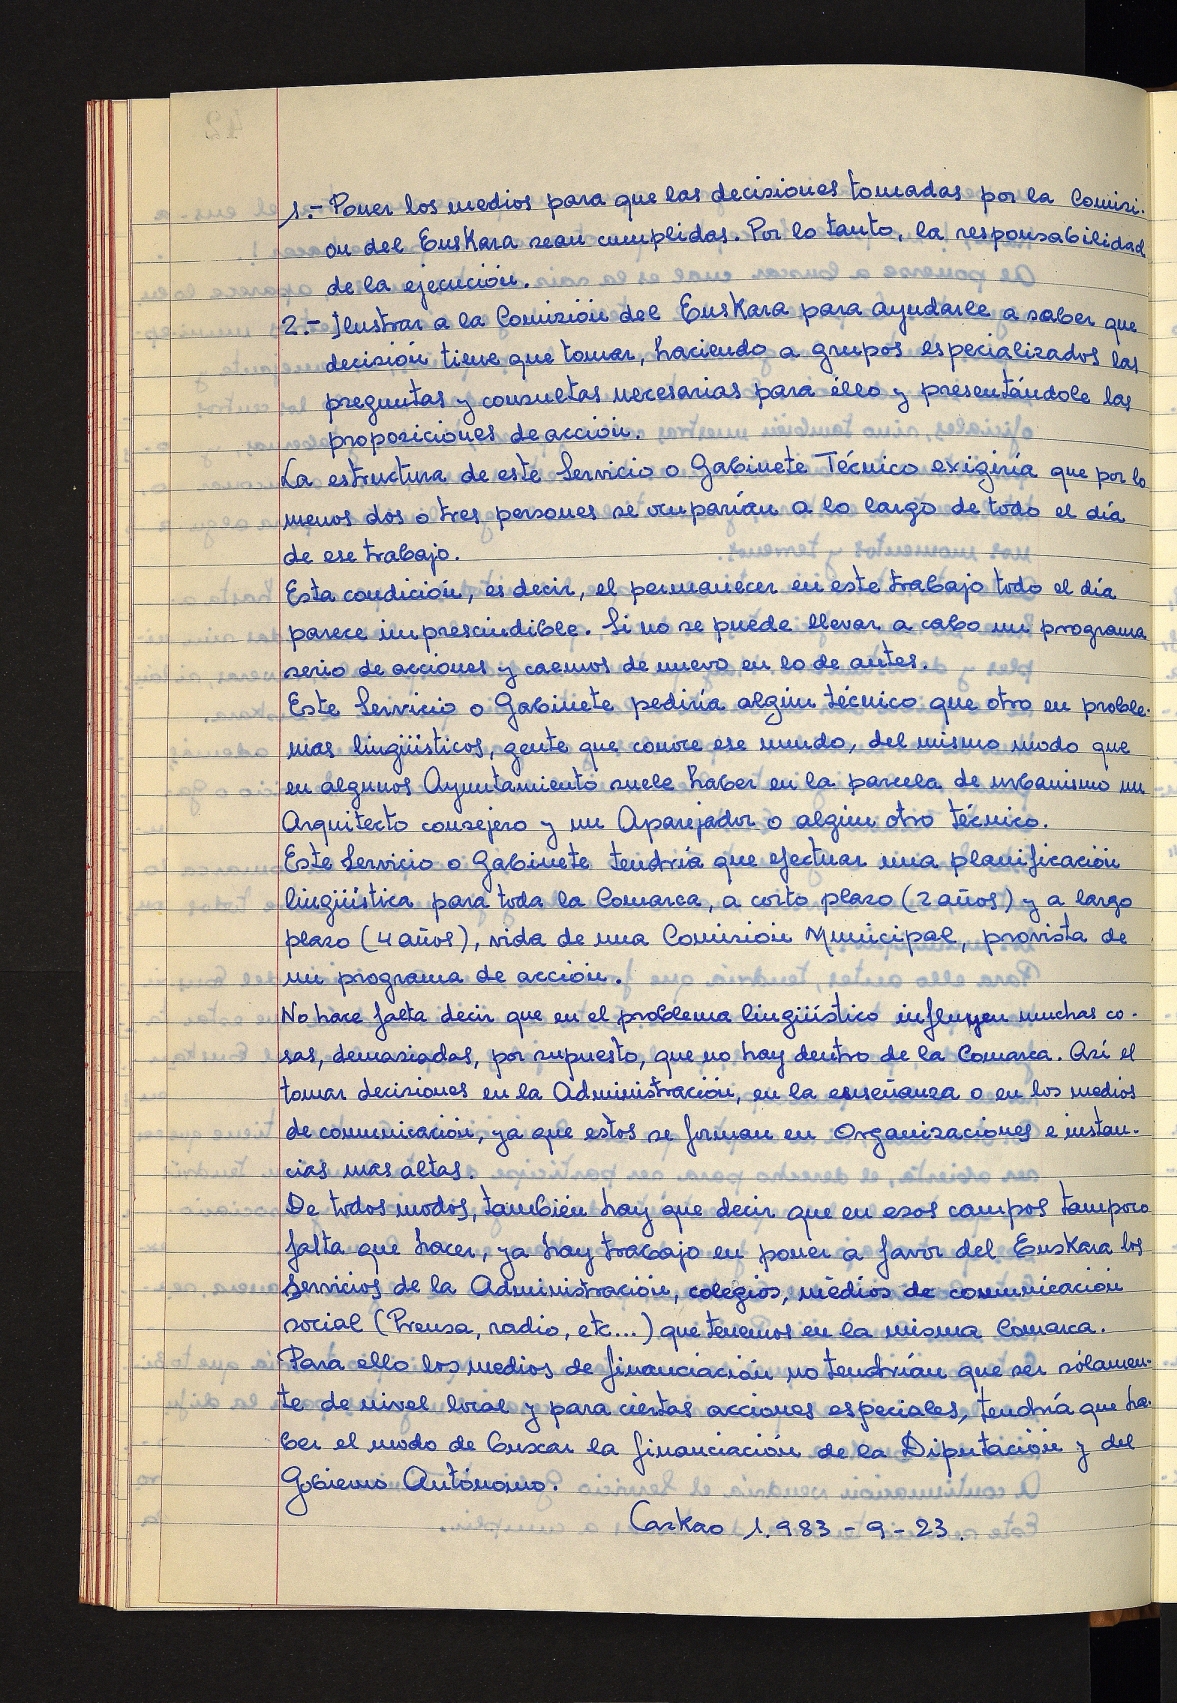 1.- Poner los medios para que las decisiones tomadas por la Comisi-
on del Euskara sean cumplidas. Por lo tanto, la responsabilidad
de la ejecución.
2.- Ilustrar a la Comisión del Euskara para ayudarle a saber que
decisión tiene que tomar, haciendo a grupos especializados las
preguntas y consultas necesarias para éllo y presentándole las
proposiciones de acción.
La estructura de este Servicio o Gabinete Técnico exigiría que por lo
menos dos o tres persones se ocuparían a lo largo de todo el día
de ese trabajo.
Esta condición, es decir, el permanecer en este trabajo todo el día
parece imprescindible. Si no se puede llevar a cabo un programa
serio de acciones y caemos de nuevo en lo de antes.
Este Servicio o Gabinete pediría algún técnico que otro en proble-
mas lingüísticos, gente que conoce ese mundo, del mismo modo que
en algunos Ayuntamiento suele haber en la parcela de urbanismo un
Arquitecto consejero y un Aparejador o algún otro técnico.
Este Servicio o Gabinete tendría que efectuar una planificación
lingüística para toda la Comarca, a corto plazo (2 años) y a largo
plazo (4 años), vida de una Comisión Municipal, provista de
un programa de acción.
No hace falta decir que en el problema lingüístico influyen muchas co-
sas, demasiadas, por supuesto, que no hay dentro de la Comarca. Así el
tomar decisiones en la Administración, en la enseñanza o en los medios
de comunicación, ya que estos se forman en Organizaciones e instan-
cias mas altas.
De todos modos, también hay que decir que en esos campos tampoco
falta que hacer, ya hay trabajo en poner a favor del Euskara los
Servicios de la Administración, colegios, médios de comunicación
social (Prensa, radio, etc...) que tenemos en la misma Comarca.
Para ello los medios de financiación no tendrían que ser sólamen-
te de nivel local y para ciertas acciones especiales, tendría que ha-
ber el modo de buscar la financiación de la Diputación y del
Gobierno Autónomo.
Cazkao 1.983-9-23.